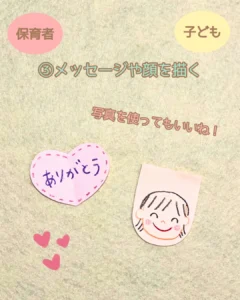 保育者
子ども
⑤メッセージや顔を描く
写真を使ってもいいね！
ありがとう